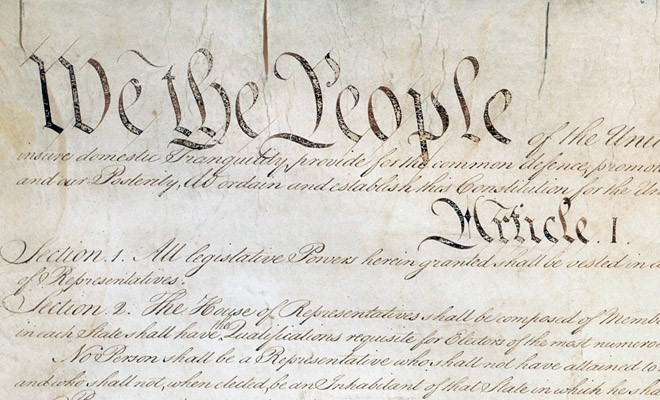 We the People of the Unit
insure domestic Tranquility, provide for the common defence, promot
and our Posterity, do ordain and establish this Constitution for the Un
Article. I.
Section. 1. All legislative Powers herein granted shall be vested in a
of Representatives.
Section. 2. The House of Representatives shall be composed of Membe
in each State shall have the Qualifications requisite for Electors of the most numerou
No Person shall be a Representative who shall not have attained to
and who shall not, when elected, be an Inhabitant of that State in which he sha